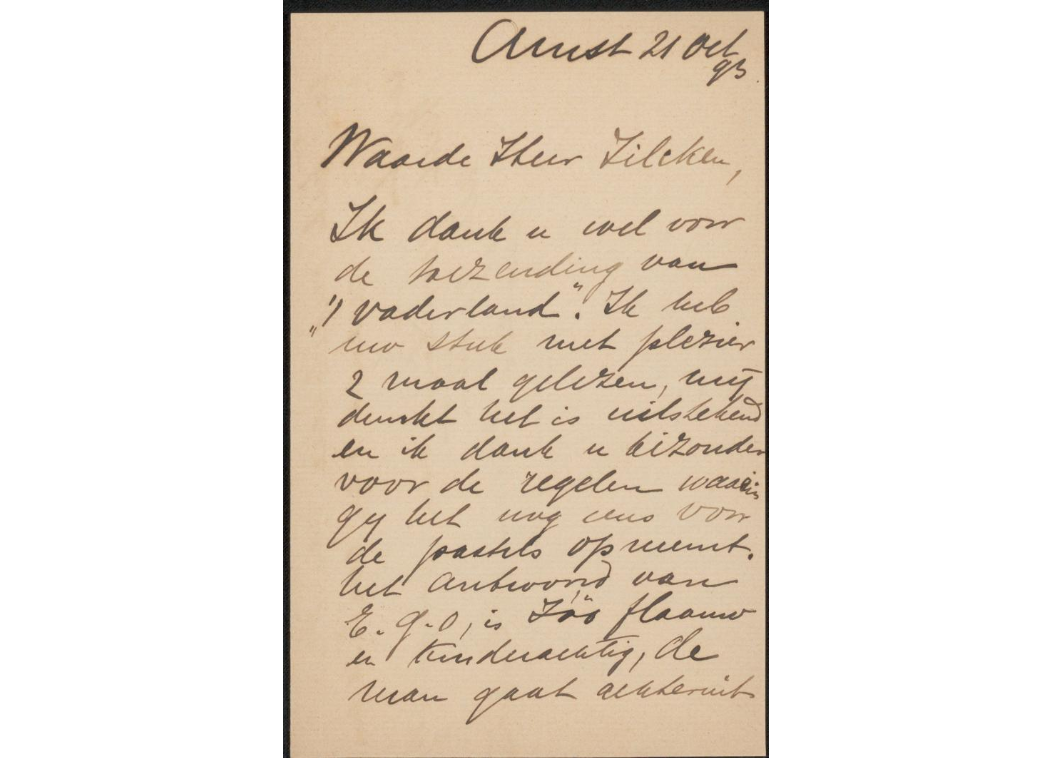 Amst 21 Oct
93
Waarde Heer Zilcken,
Ik dank u wel voor
de toezending van
„'t vaderland". Ik heb
uw stuk met plezier
2 maal gelezen, mij
dunkt het is uitstekend
en ik dank u bizonder
voor de regelen waarin
gij het nog eens voor
de pastels opneemt.
Het antwoord van
E. g-0, is zóó flaauw
en kinderachtig, de
man gaat achteruit